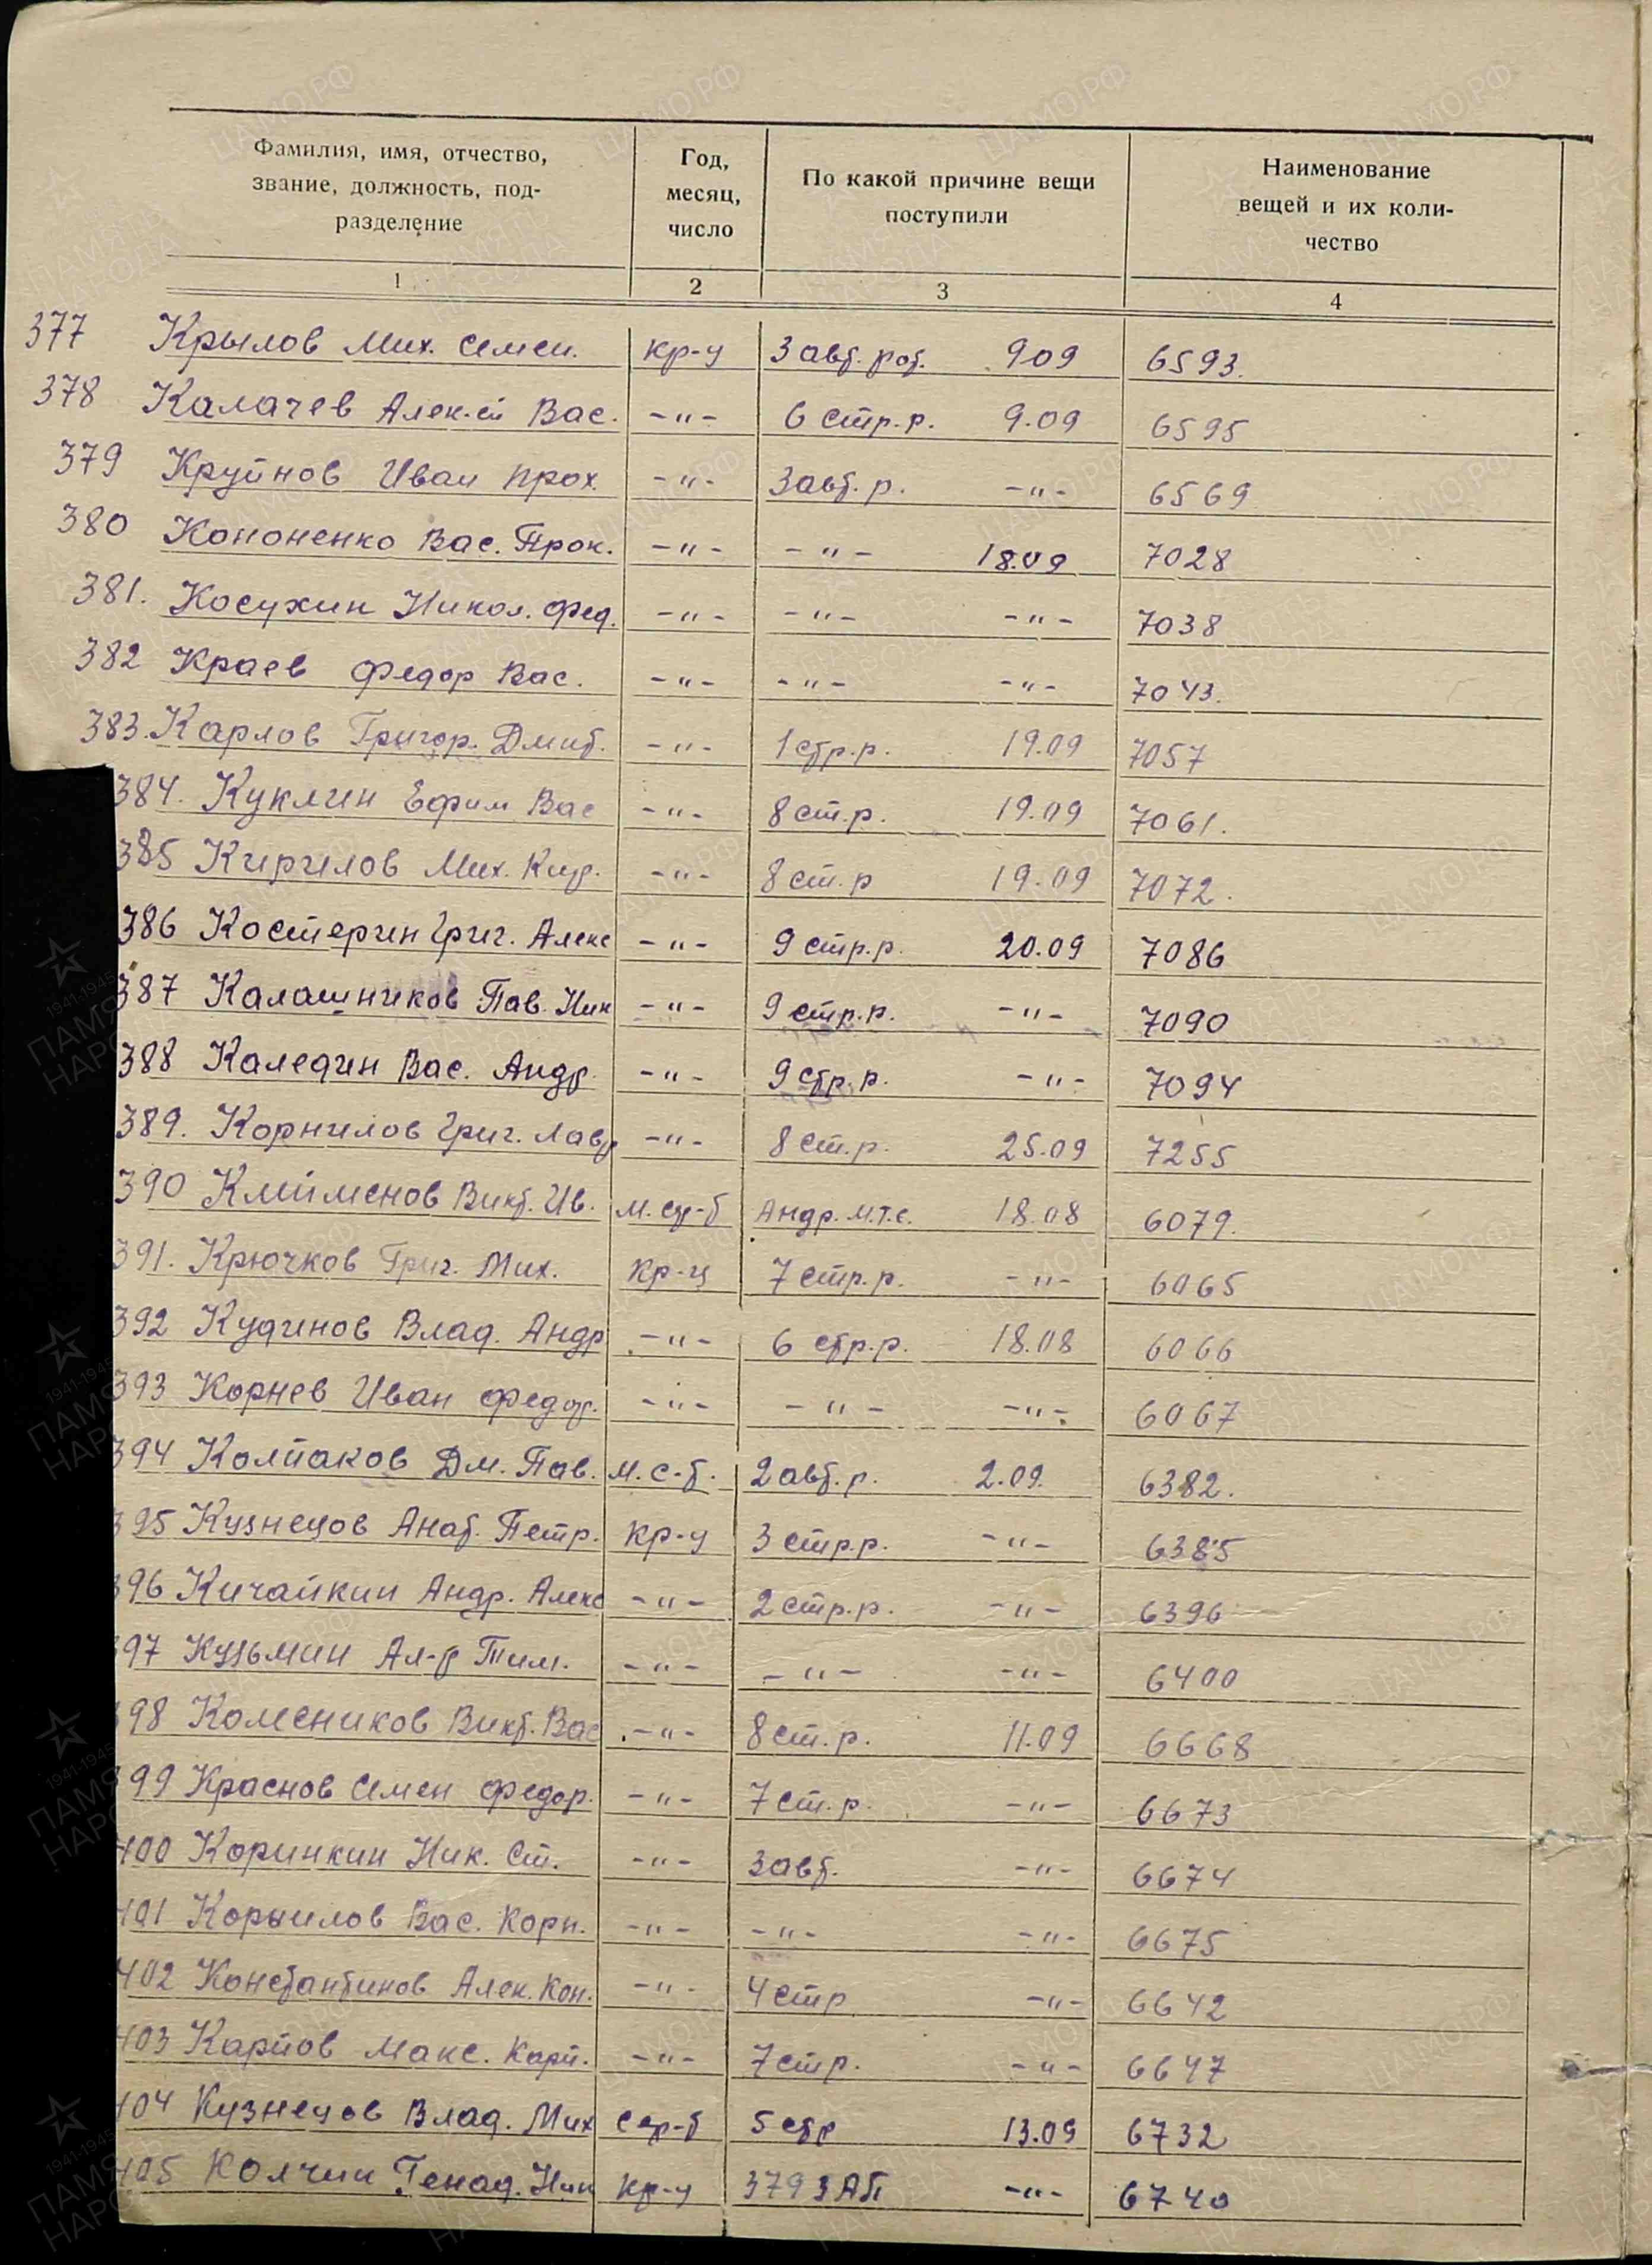 Фамилия, имя, отчество, звание, должность, под-разделение | Год, месяц, число | По какой причине вещи поступили | Наименование вещей и их коли-чество
1 2 3 4
377 Крылов Мих. Семен. кр-ц 3 авт. рот. 9 09 6593.
378 Калачев Алек-ей Вас. -"- 6 стр.р. 9.09 6595
379 Круйнов Иван Прох. -"- 3 авт. р. -"- 6569
380 Кононенко Вас. Прок. -"- -"- 18.09 7028
381. Косухин Никол. Фед. -"- -"- -"- 7038
382 Краев Федор Вас. -"- -"- -"- 7043.
383. Карлов Григор. Дмит. -"- 1 стр.р. 19.09 7057
384. Куклин Ефим Вас -"- 8 ст.р. 19.09 7061.
385 Кирилов Мих. Кир. -"- 8 ст.р 19.09 7072.
386 Костерин Григ. Алекс -"- 9 стр.р. 20.09 7086
387 Калашников Пав. Ник -"- 9 стр.р. -"- 7090
388 Каледин Вас. Андр. -"- 9 стр.р. -"- 7094
389. Корнилов Григ. Лавр -"- 8 ст.р. 25.09 7255
390 Клейменов Викт. Ив. м. сер-т Андр. М.Т.С. 18.08 6079.
391. Крючков Григ. Мих. кр-ц 7 стр.р. -"- 6065
392 Кудинов Влад. Андр -"- 6 стр.р. 18.08 6066
393 Корнев Иван Федор. -"- -"- -"- 6067
394 Колпаков Дм. Пав. м. с-т. 2 авт. р. 2.09. 6382.
395 Кузнецов Анат. Петр. кр-ц 3 стр.р. -"- 6385
396 Кичайкин Андр. Алекс -"- 2 стр.р. -"- 6396
397 Кузьмин Ал-р Тим. -"- -"- -"- 6400
398 Колесников Викт. Вас -"- 8 ст.р. 11.09 6668
399 Краснов Семен Федор. -"- 7 ст.р. -"- 6673
400 Коринкин Ник. Ст. -"- 3 авт. -"- 6674
401 Корнилов Вас. Корн. -"- -"- -"- 6675
402 Константинов Алек. Кон. -"- 4 стр -"- 6642
403 Карпов Макс. Карп. -"- 7 стр. -"- 6647
404 Кузнецов Влад. Мих сер-т 5 стр 13.09 6732
405 Колчин Генад. Ник кр-ц 379 ЗАП -"- 6740